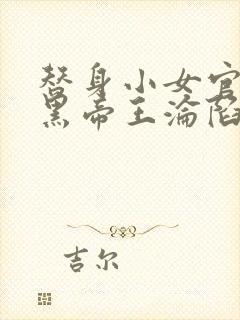 替身小女官
黑帝王淪陷
吉尔